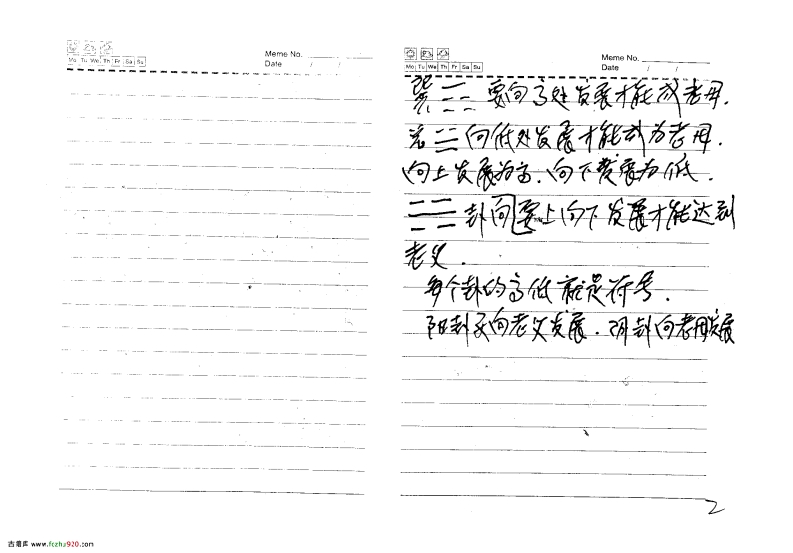 Meme No.
Mo Tu We Th Fr Sa Su
Date / /
Meme No.
Mo Tu We Th Fr Sa Su
Date / /
巽☴☷要向高处发展才能成老母.
兑☱向低处发展才能成为老母.
向上发展为高.向下发展为低.
卦向要上向下发展才能达到
老父.
每个卦的高低就是符号.
阳卦子向老父发展.阴卦向老母发展
2
古籍库 www.fczhu920.com